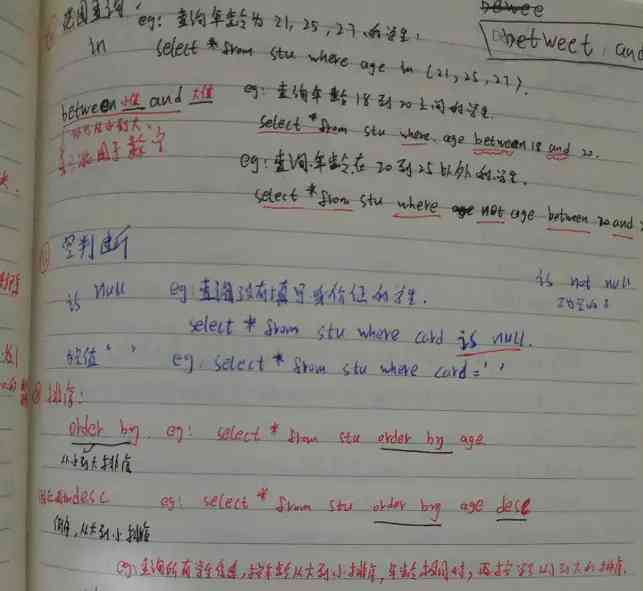 bewee
范围查询 eg: 查询年龄为 21, 25, 27 的学生.
betweet, and
in select * from stu where age in (21, 25, 27).
between 小值 and 大值 eg: 查询年龄 18 到 20 之间的学生.
select * from stu where age between 18 and 20.
用于数字
eg: 查询年龄在 20 到 25 以外的学生.
select * from stu where not age between 20 and
空判断
is not null
is null eg: 查询没有填写身份证的学生.
select * from stu where card is null.
空值 ' ' eg: select * from stu where card = ' '
排序:
order by eg: select * from stu order by age
从小到大排序
desc eg: select * from stu order by age desc
从大到小排序
eg: 查询所有学生信息, 按年龄从大到小排序, 年龄相同时, 再按学号从小到大排序.